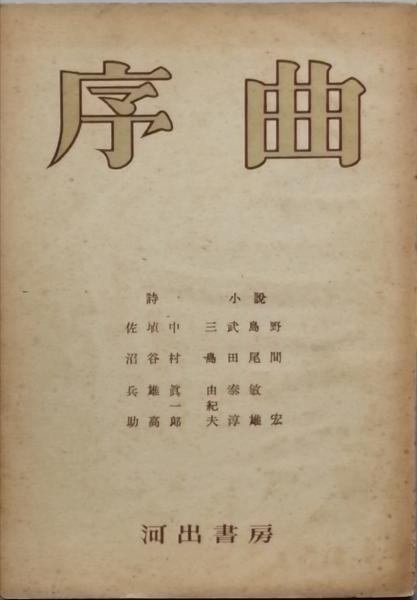 序曲
詩・小說
野間宏
島尾敏雄
武田泰淳
三島由紀夫
中村眞一郎
埴谷雄高
佐沼兵助
河出書房